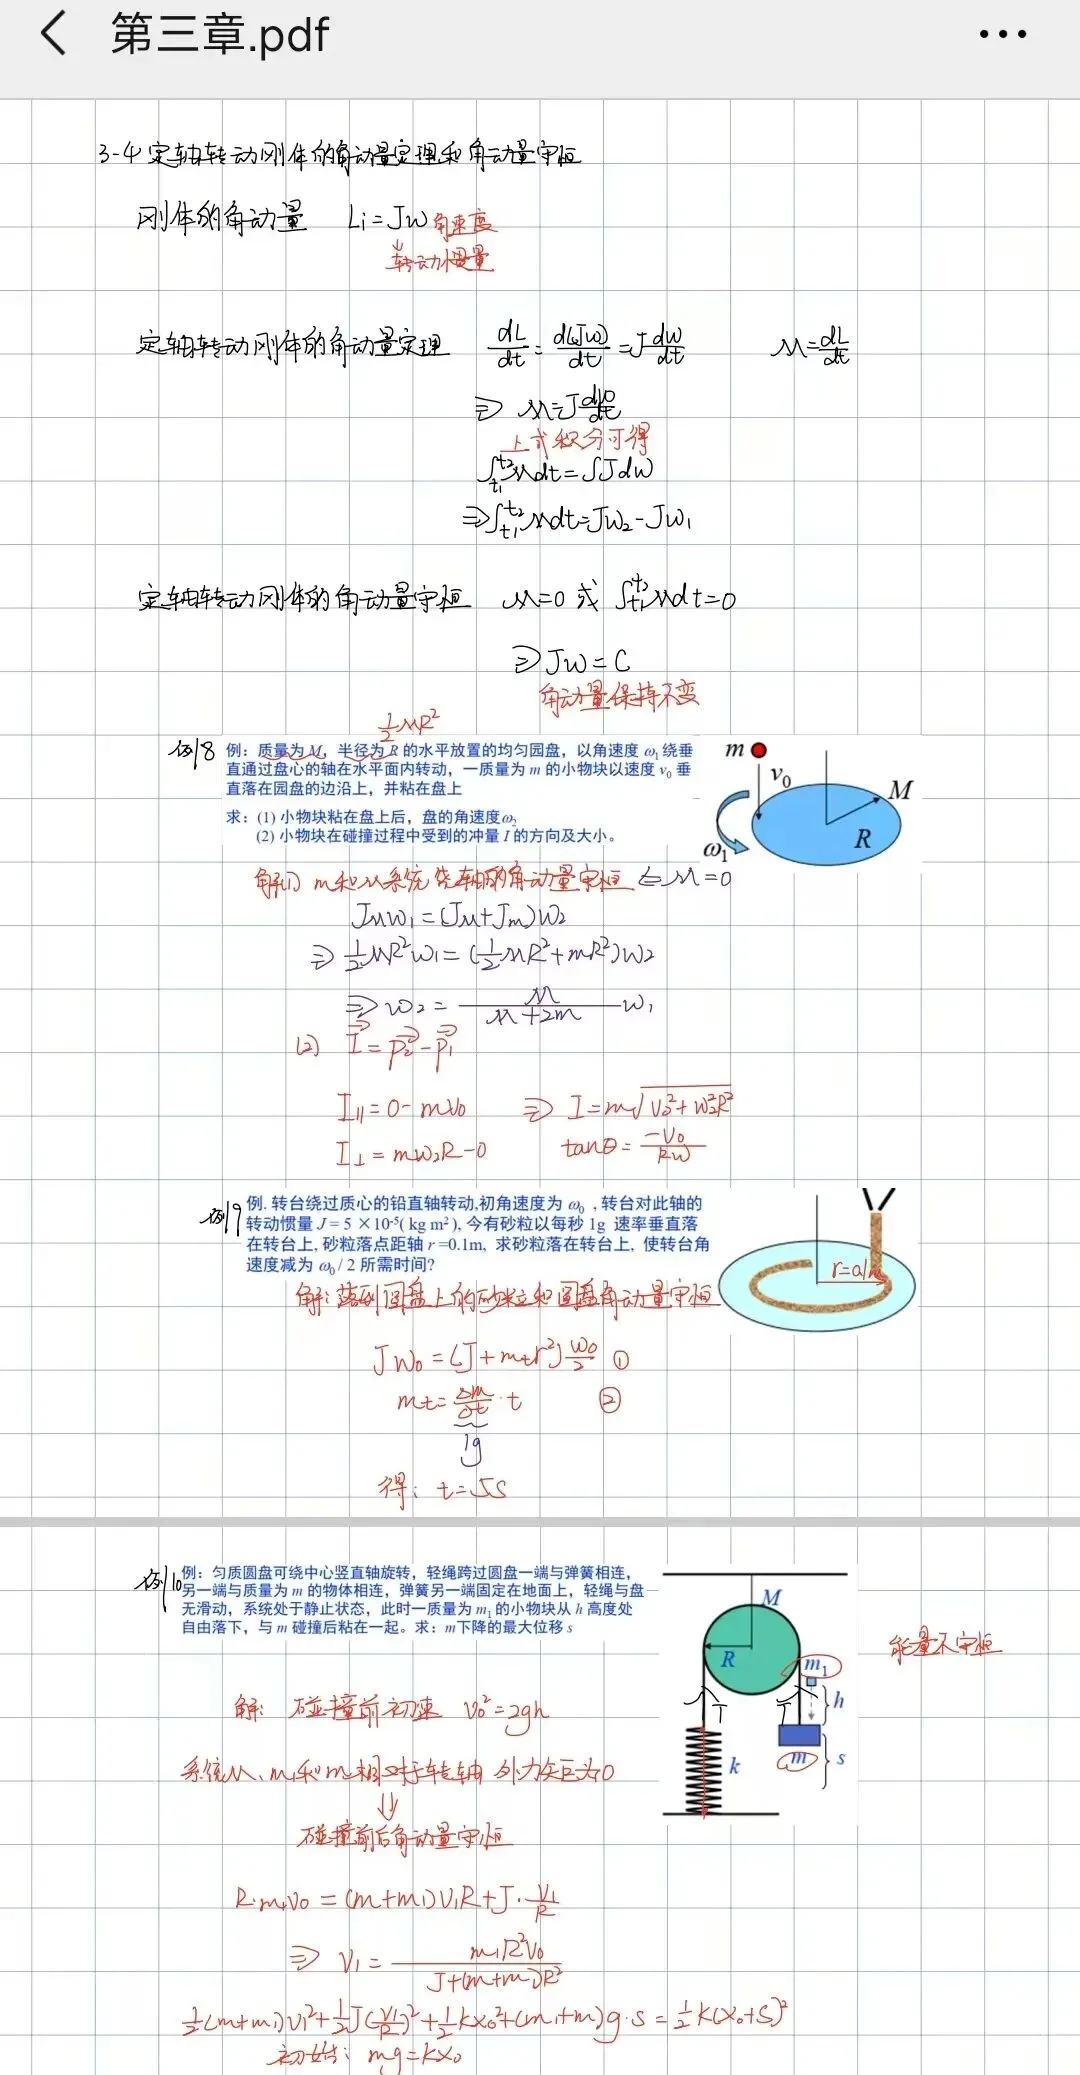 第三章.pdf
3-4 定轴转动刚体的角动量定理和角动量守恒
刚体的角动量 Li=Jw 角速度
转动惯量
定轴转动刚体的角动量定理 dL/dt=d(Jw)/dt=J dw/dt M=dL/dt
⇒ M=J dw/dt
上式积分可得
∫t1 t2 Mdt=∫Jdw
⇒∫t1 t2 Mdt=Jw₂-Jw₁
定轴转动刚体的角动量守恒 M=0 或 ∫t1 t2 Mdt=0
⇒Jw=C
角动量保持不变
1/2 MR²
例8 例：质量为 M，半径为 R 的水平放置的均匀园盘，以角速度 ω₁ 绕垂
直通过盘心的轴在水平面内转动，一质量为 m 的小物块以速度 v₀ 垂
直落在园盘的边沿上，并粘在盘上
求：(1) 小物块粘在盘上后，盘的角速度ω₂
(2) 小物块在碰撞过程中受到的冲量 I 的方向及大小。
m v₀ M R ω₁
解(1) m和M系统绕轴的角动量守恒 ⇐M=0
JMw₁=(JM+Jm)w₂
⇒ 1/2 MR²w₁=(1/2 MR²+mR²)w₂
⇒ w₂= M/(M+2m) w₁
(2) I⃗=p₂⃗-p₁⃗
I∥=0-mv₀ ⇒ I=m√(v₀²+w₂²R²)
I⊥=mw₂R-0 tanθ=-v₀/Rw
例9 例. 转台绕过质心的铅直轴转动,初角速度为 ω₀ , 转台对此轴的
转动惯量 J = 5 ×10⁻⁵( kg m² ), 今有砂粒以每秒 1g 速率垂直落
在转台上, 砂粒落点距轴 r =0.1m, 求砂粒落在转台上, 使转台角
速度减为 ω₀ / 2 所需时间？
r=0.1m
解：落到圆盘上的砂粒和圆盘角动量守恒
Jw₀=(J+mtr²)w₀/2 ①
mt=Δm/Δt·t ②
1g
得：t=5s
例10 例：匀质圆盘可绕中心竖直轴旋转，轻绳跨过圆盘一端与弹簧相连，
另一端与质量为 m 的物体相连，弹簧另一端固定在地面上，轻绳与盘
无滑动，系统处于静止状态，此时一质量为 m₁ 的小物块从 h 高度处
自由落下，与 m 碰撞后粘在一起。求：m下降的最大位移 s
M R m₁ h T T k m s
能量不守恒
解：碰撞前初速 v₀²=2gh
系统M、m₁和m相对于转轴 外力矩为0
⇓
碰撞前后角动量守恒
R·m₁v₀=(m+m₁)v₁R+J·v₁/R
⇒ v₁= m₁R²v₀/(J+(m+m₁)R²)
1/2(m+m₁)v₁²+1/2J(v₁/R)²+1/2kx₀²+(m₁+m)g·s=1/2k(x₀+s)²
初始：mg=kx₀